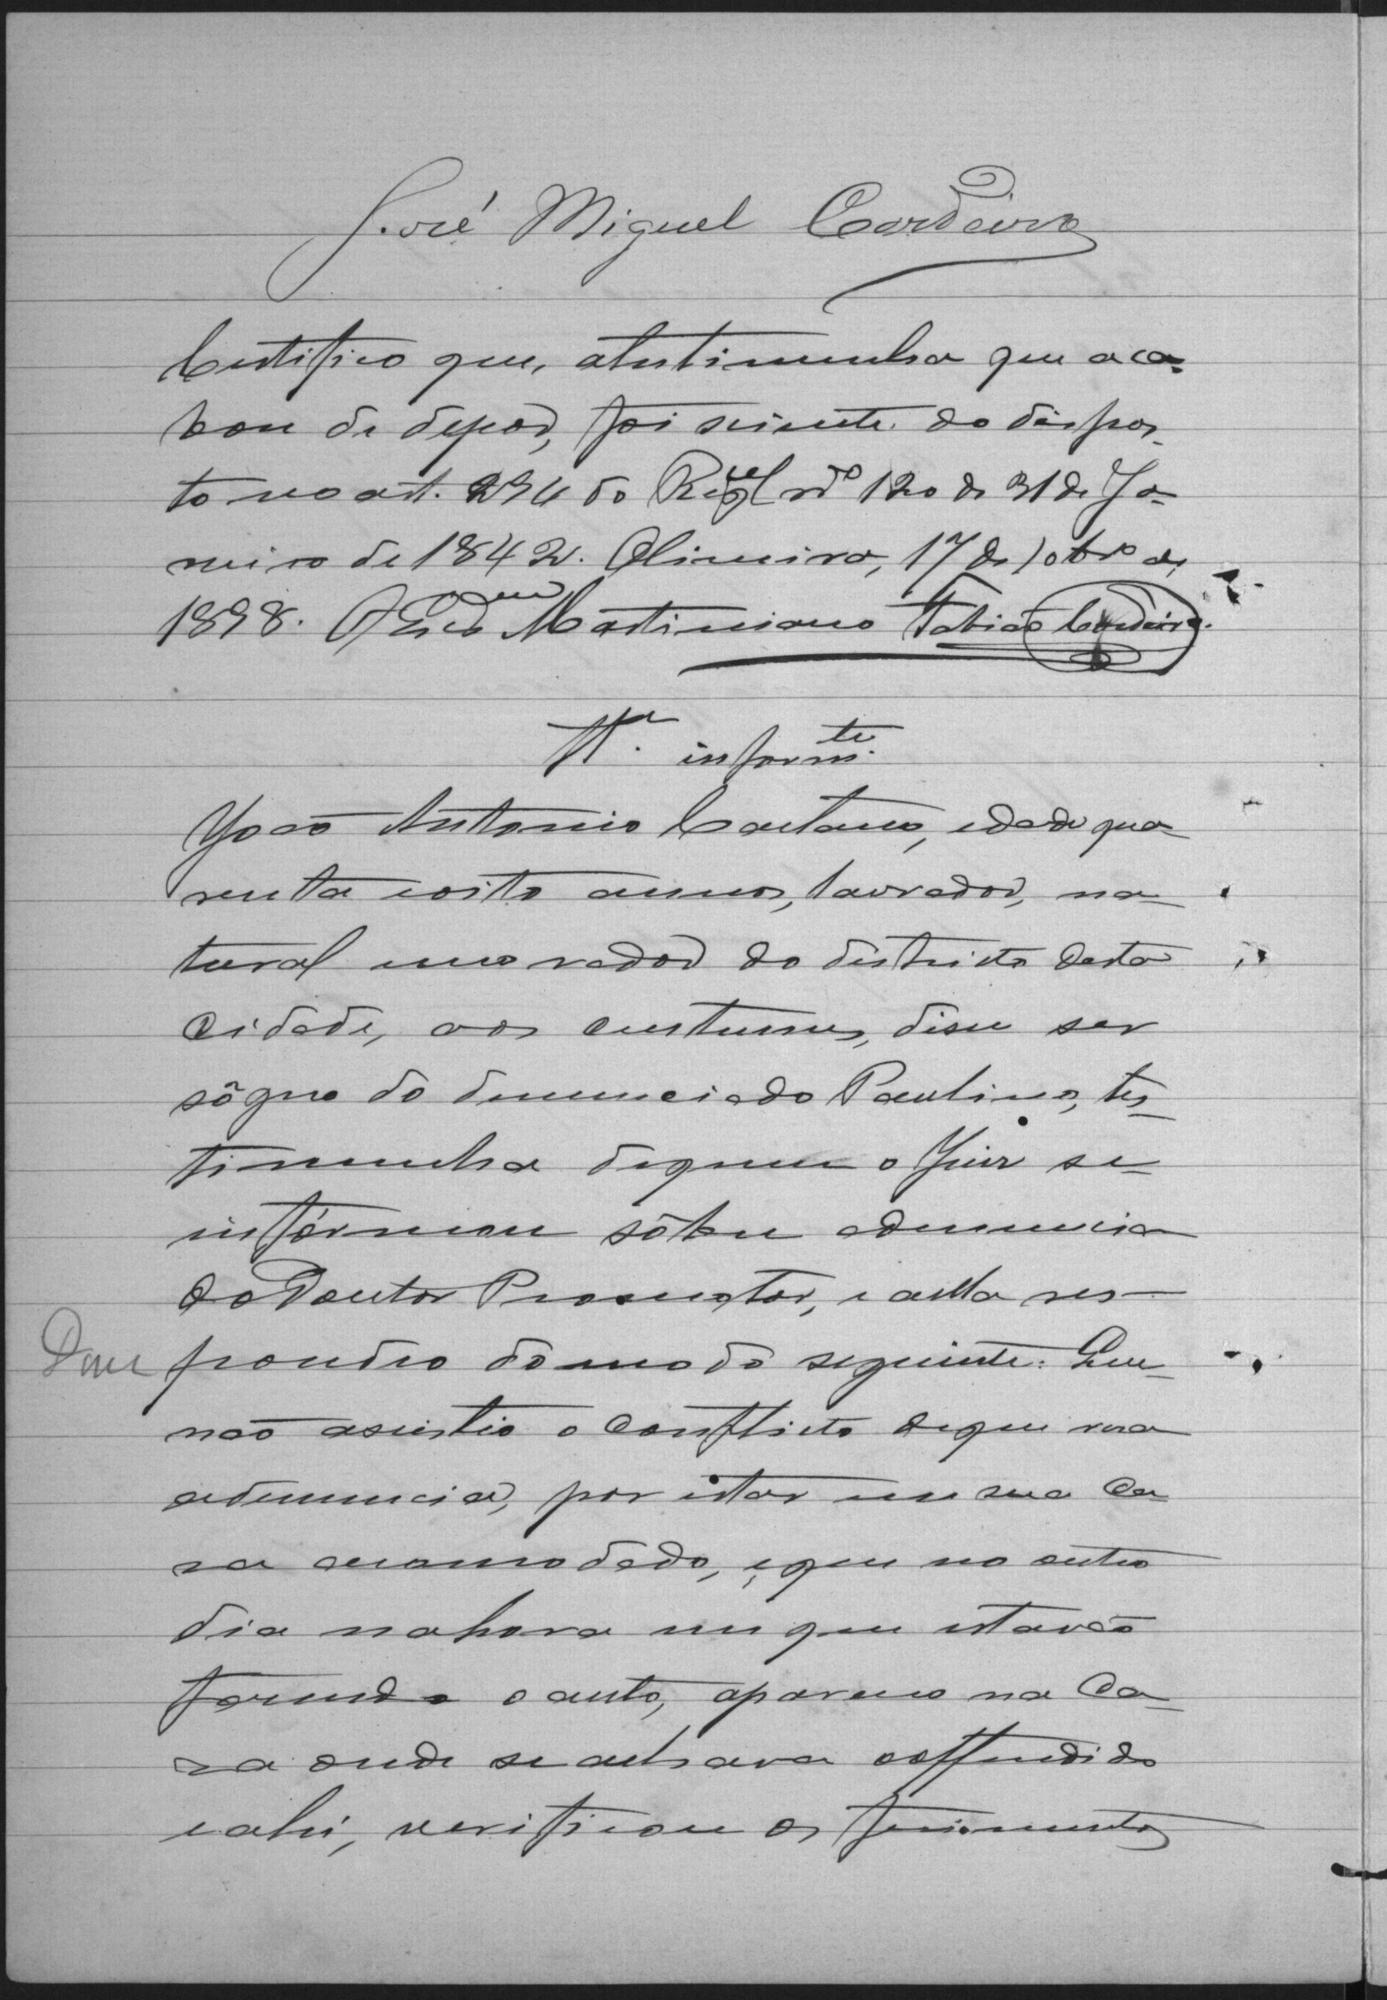 José Miguel Cordeiro
Certifico que, atestimunha que aca-
bou de depor, foi sciente do dispos-
to no art. 294 do Regul nº 120 de 31 de Ja-
neiro de 1842. Limeira, 17 de 10brº de
1898. O Escrm Martiniano Fabião Cordeiro.
Tª informte
João Antonio Caetano, edade qua-
renta eoito annos, lavrador, na-
tural emorador do districto desta
cidade, aos custumes, disse ser
sôgro do denunciado Paulino, tes-
timunha dequem o Juiz se-
infórmou sôbre adenuncia
do Doutor Promotor, e aella res-
Dou pondeo do modo seguinte: Que
não asestio o conflicto deque resa
adenuncia, por estar em sua Ca-
sa acomodado, eque no outro
dia nahora em que estavão
fasendo o auto, apareceo na Ca-
sa onde se achava ooffendido
eahi, verificou os ferimentos